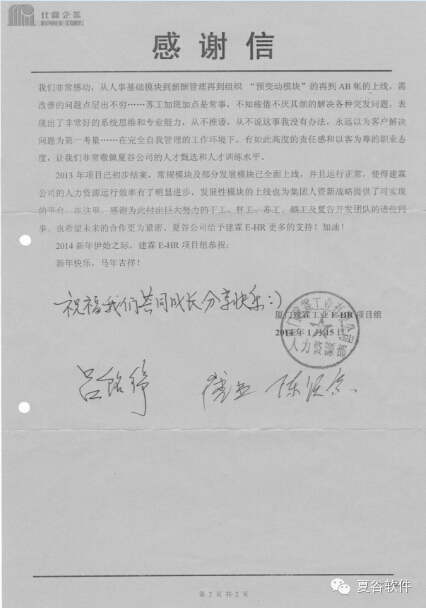 仕霖企業
感谢信
我们非常感动，从人事基础模块到薪酬管理再到组织 “预变动模块”的再到 AB 帐的上线，需
改善的问题点层出不穷……苏工加班加点是常事，不知疲倦不厌其烦的解决各种突发问题，表
现出了非常好的系统思维和专业能力，从不推诿，从不说这事我没有办法，永远以为客户解决
问题为第一考量……在完全自我管理的工作环境下，有如此高度的责任感和以客为尊的职业态
度，让我们非常敬佩夏谷公司的人才甄选和人才训练水平。
2013 年项目已初步结案，常规模块及部分发展模块已全面上线，并且运行正常，使得建霖
公司的人力资源运行效率有了明显进步，发展性模块的上线也为集团人资新战略提供了可实现
的平台，在这里，感谢为此付出巨大努力的于工、林工、苏工、及夏谷开发团队的诸位同
事，也希望未来的合作更为紧密，夏谷公司给予建霖 E-HR 更多的支持！加油！
2014 新年伊始之际，建霖 E-HR 项目组恭祝：
新年快乐，马年吉祥！
祝福我们共同成长分享快乐:)
厦门建霖工业 E-HR 项目组
2014 年 1 月 15 日
人力资源部
第 2 页 共 2 页
夏谷软件